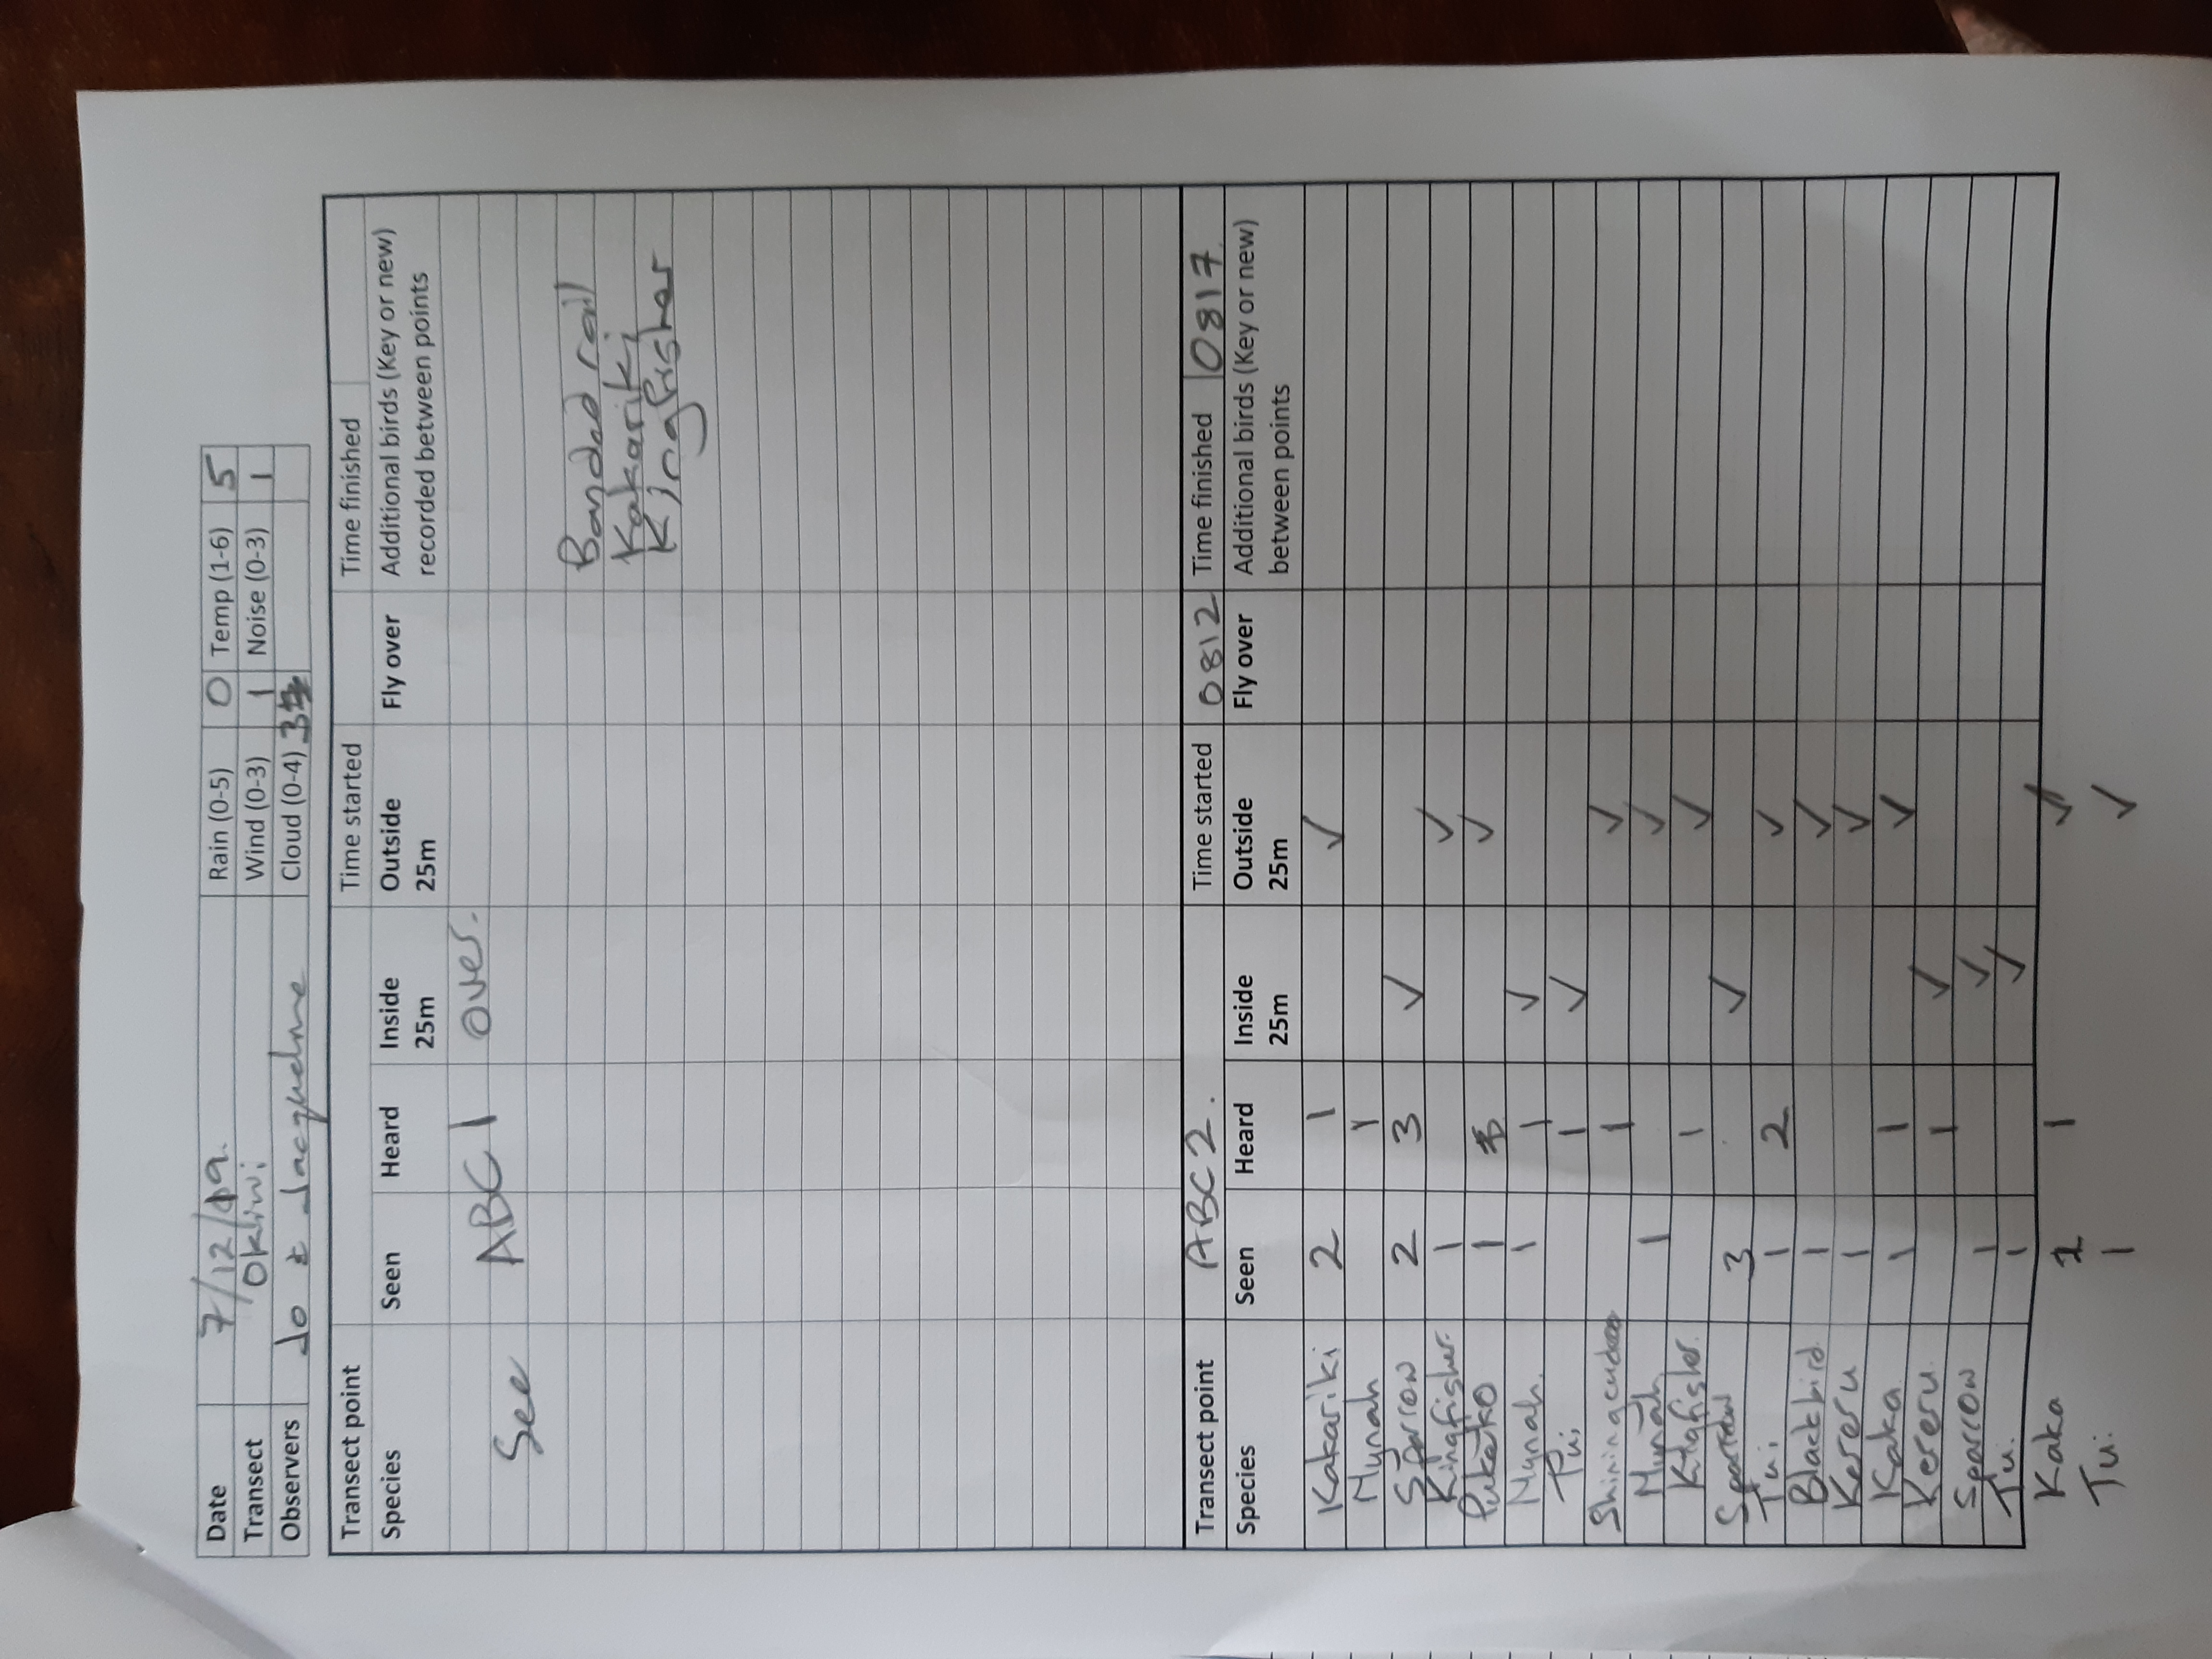 Date 7/12/19. Rain (0-5) 0 Temp (1-6) 5
Transect Okiwi Wind (0-3) 1 Noise (0-3) 1
Observers Jo & Jacqueline Cloud (0-4) 3
Transect point Time started Time finished
Species Seen Heard Inside 25m Outside 25m Fly over Additional birds (Key or new) recorded between points
See ABC1 over.
Banded rail
Kakariki
Kingfisher
Transect point ABC2. Time started 0812 Time finished 0817
Species Seen Heard Inside 25m Outside 25m Fly over Additional birds (Key or new) between points
Kakariki 2 1 ✓
Mynah 1
Sparrow 2 3 ✓
Kingfisher. 1 ✓
Pukeko 1 ✓
Mynah. 1 1 ✓
Tui 1 ✓
Shining 1 ✓
Mynah 1 ✓
Kingfisher. 1 ✓
Sparrow 3 ✓
Tui 1 2 ✓
Blackbird 1 ✓
Kereru 1 ✓
Kaka 1 1 ✓
Kereru 1 ✓
Sparrow 1 ✓
Tui 1 ✓
Kaka 1 ✓
Tui 1 ✓